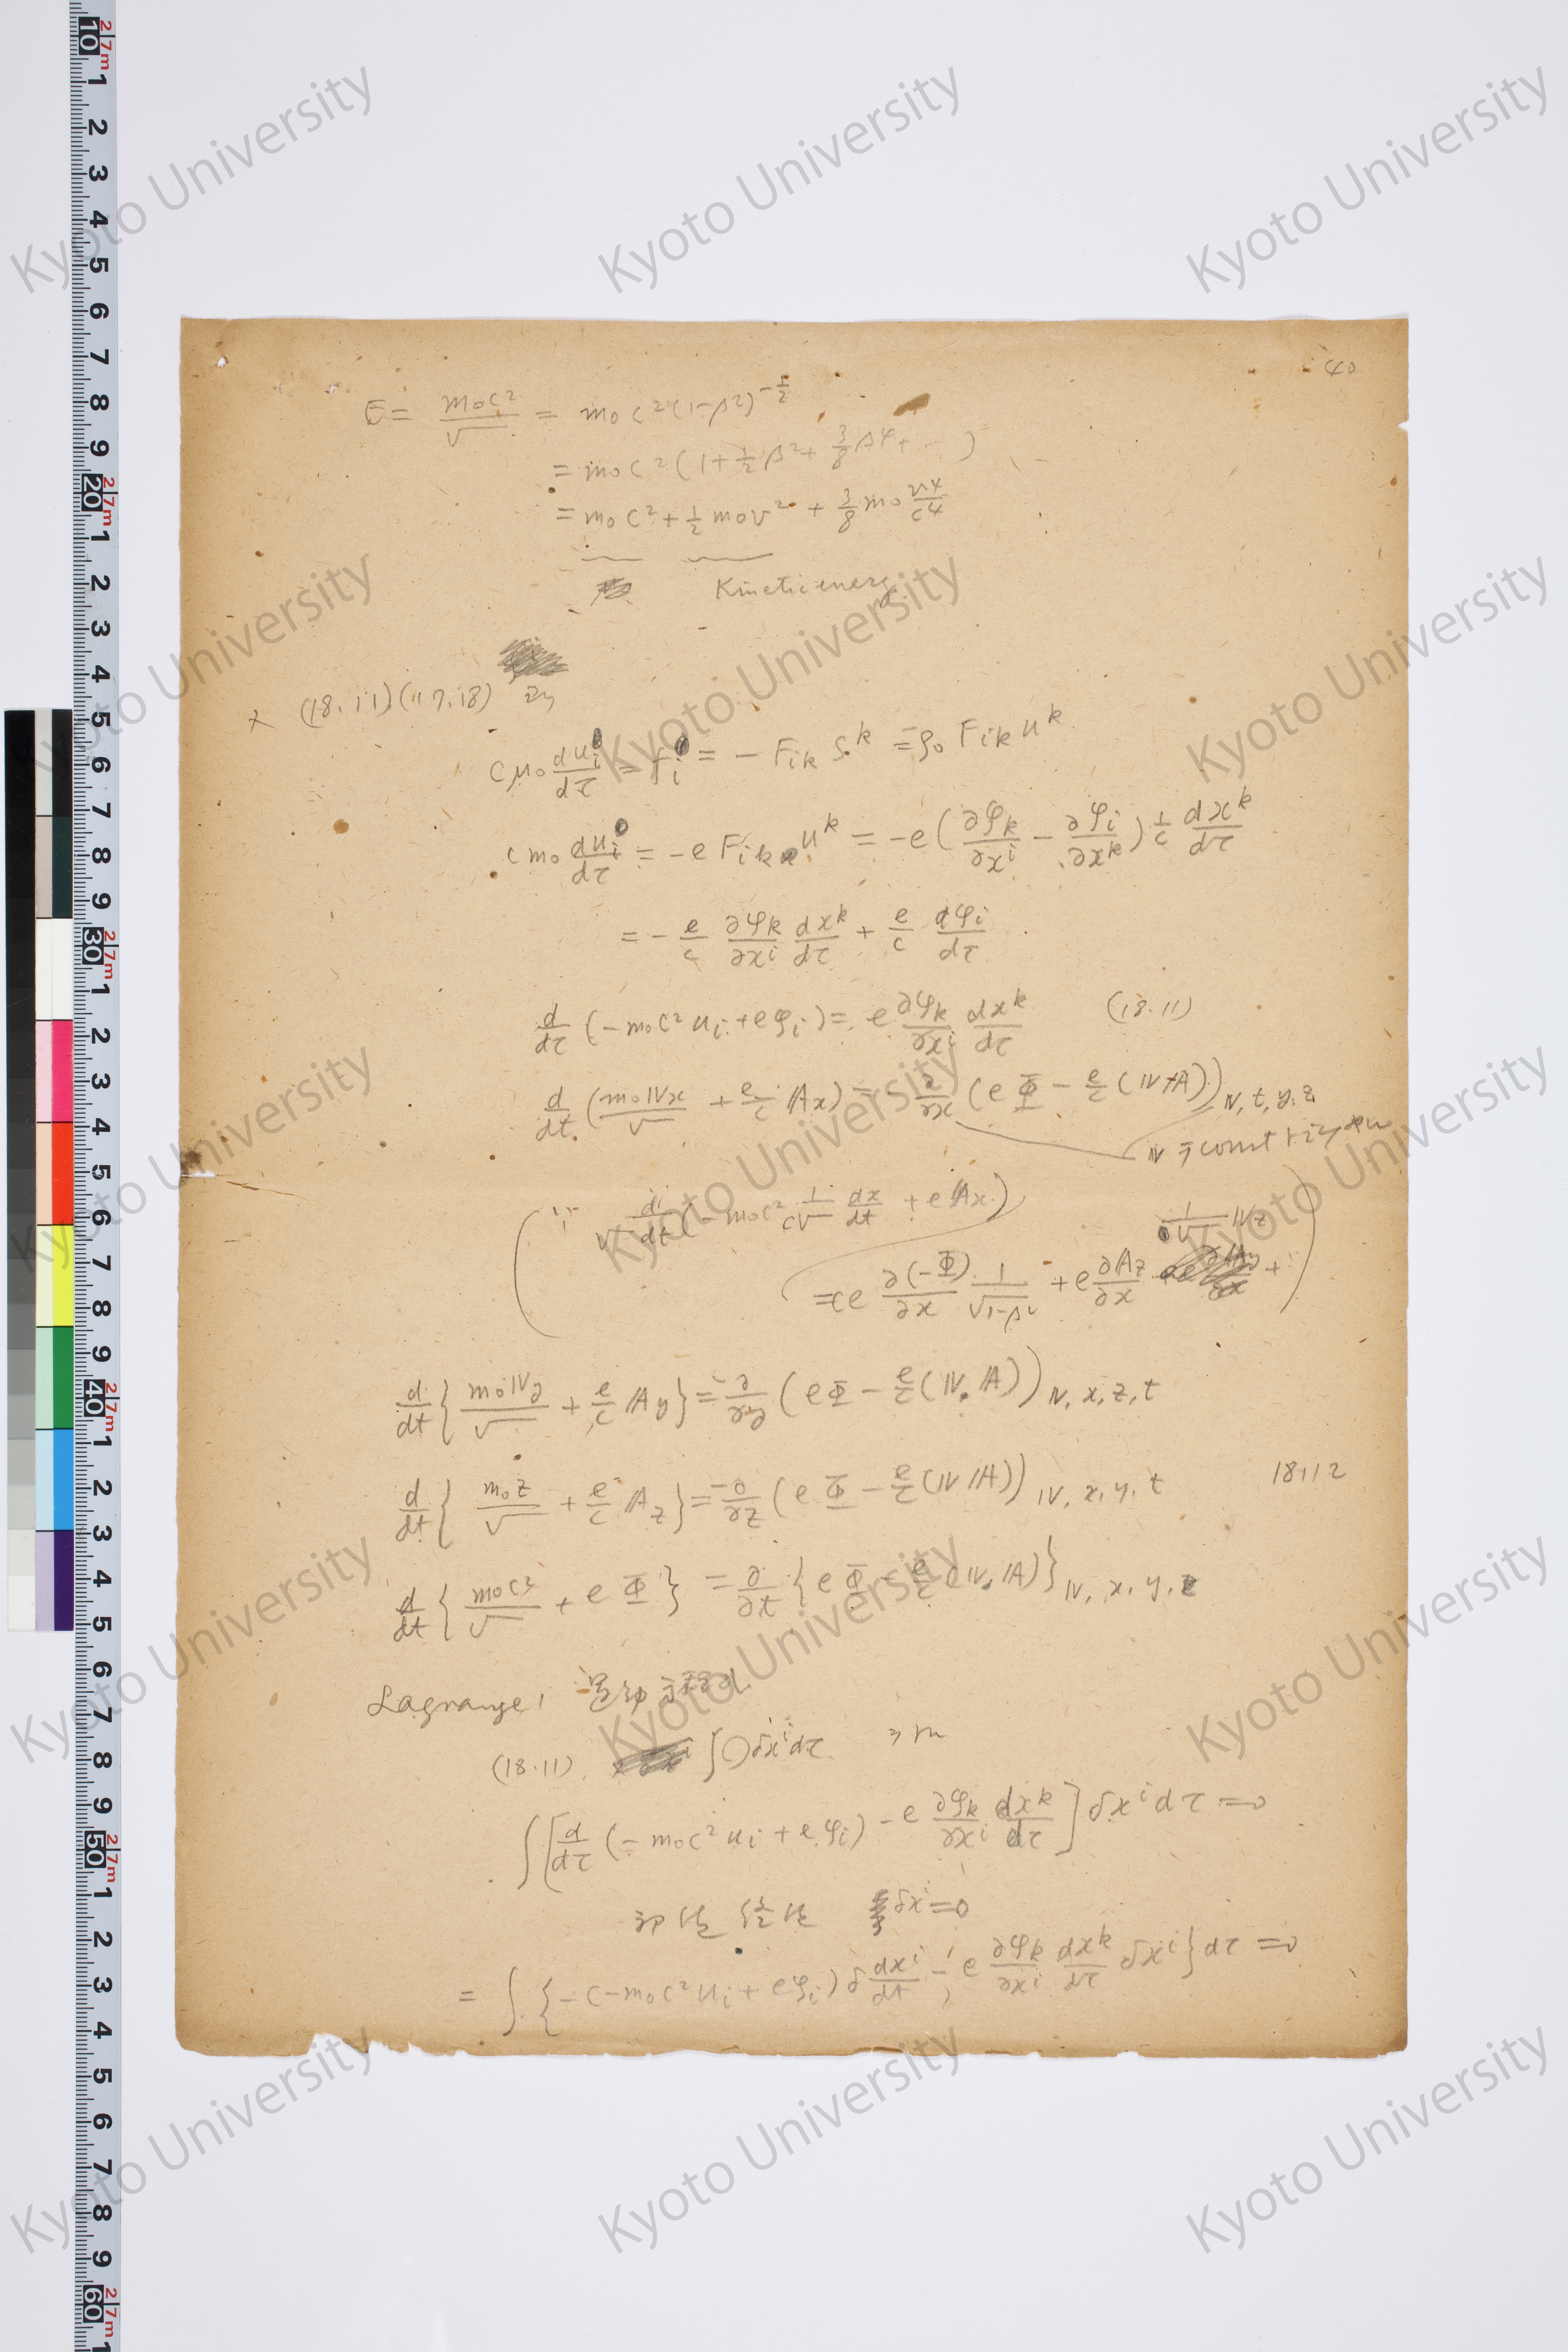 40
E = m₀c²/√ = m₀c²(1-β²)^{-1/2}
= m₀c²(1 + 1/2 β² + 3/8 β⁴ + … )
= m₀c² + 1/2 m₀v² + 3/8 m₀ v⁴/c⁴
Kinetic energy
× (18.11)(17.18)
cμ₀ du_i/dτ = f_i = - F_{ik} s^k = ρ₀ F_{ik} u^k
c m₀ du_i/dτ = -e F_{ik} u^k = -e(∂φ_k/∂x^i - ∂φ_i/∂x^k) 1/c dx^k/dτ
= - e/c ∂φ_k/∂x^i dx^k/dτ + e/c dφ_i/dτ
d/dτ (-m₀c² u_i + eφ_i) = e ∂φ_k/∂x^i dx^k/dτ (18.11)
d/dt (m₀𝕍x/√ + e/c 𝔸x) = - ∂/∂x (eΦ - e/c (𝕍𝔸))_{𝕍, t, y, z}
𝕍 = const
(∵ d/√dt (-m₀c² 1/c√ dx/dt + e𝔸x)
1/√ 𝕍z
= (e ∂(-Φ)/∂x 1/√1-β² + e ∂𝔸z/∂x + )
d/dt { m₀𝕍y/√ + e/c 𝔸y } = - ∂/∂y (eΦ - e/c (𝕍.𝔸))_{𝕍, x, z, t}
d/dt { m₀z/√ + e/c 𝔸z } = - ∂/∂z (eΦ - e/c (𝕍𝔸))_{𝕍, x, y, t} 18.12
d/dt { m₀c²/√ + eΦ } = ∂/∂t { eΦ - e/c (𝕍, 𝔸) }_{𝕍, x, y, z}
Lagrange, 運動方程式
(18.11) ∫( )δx^i dτ
∫[ d/dτ (-m₀c² u_i + eφ_i) - e ∂φ_k/∂x^i dx^k/dτ ] δx^i dτ = 0
δx^i = 0
= ∫ { -(-m₀c² u_i + eφ_i) δ dx^i/dt - e ∂φ_k/∂x^i dx^k/dτ δx^i } dτ = 0
Kyoto University